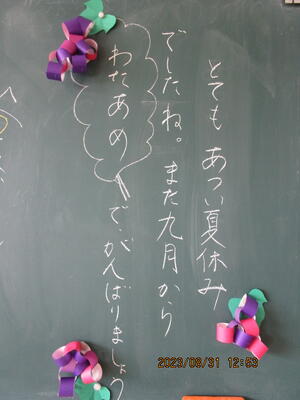 とても あつい夏休み
でしたね。また九月から
わたあめ で、がんばりましょう
2023/08/31 12:53